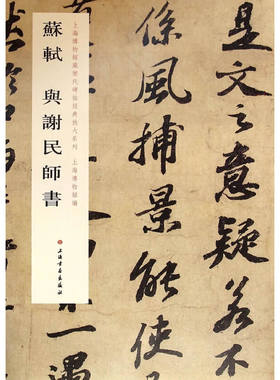 是文之意疑若不
係風捕景能使
遇
上海博物館藏歷代碑帖經典放大系列 上海博物館編
蘇軾 與謝民師書
上海書畫出版社